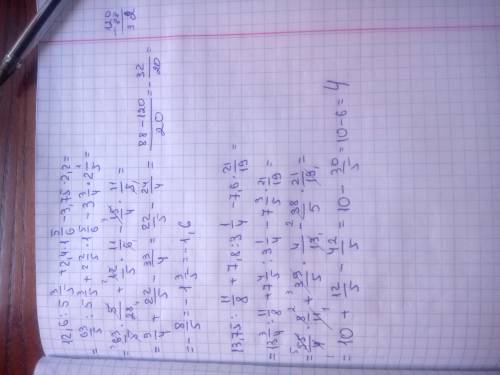 12,6 : 5 3/5 + 2,4 · 1 5/6 − 3,75 · 2,2 =
= 63/5 : 5 3/5 + 2 2/5 · 1 5/6 − 3 3/4 · 2 1/5 =
= 63/5 · 5/28 + 12/5 · 11/6 − 15/4 · 11/5 =
= 9/4 + 22/5 − 33/4 = 22/5 − 24/4 = (88 − 120)/20 = − 32/20 =
= − 8/5 = − 1 3/5 = − 1,6
120
− 88
32
13,75 : 11/8 + 7,8 : 3 1/4 − 7,6 · 21/19 =
= 13 3/4 : 11/8 + 7 4/5 : 3 1/4 − 7 3/5 · 21/19 =
= 55/4 · 8/11 + 39/5 · 4/13 − 38/5 · 21/19 =
= 10 + 12/5 − 42/5 = 10 − 30/5 = 10 − 6 = 4